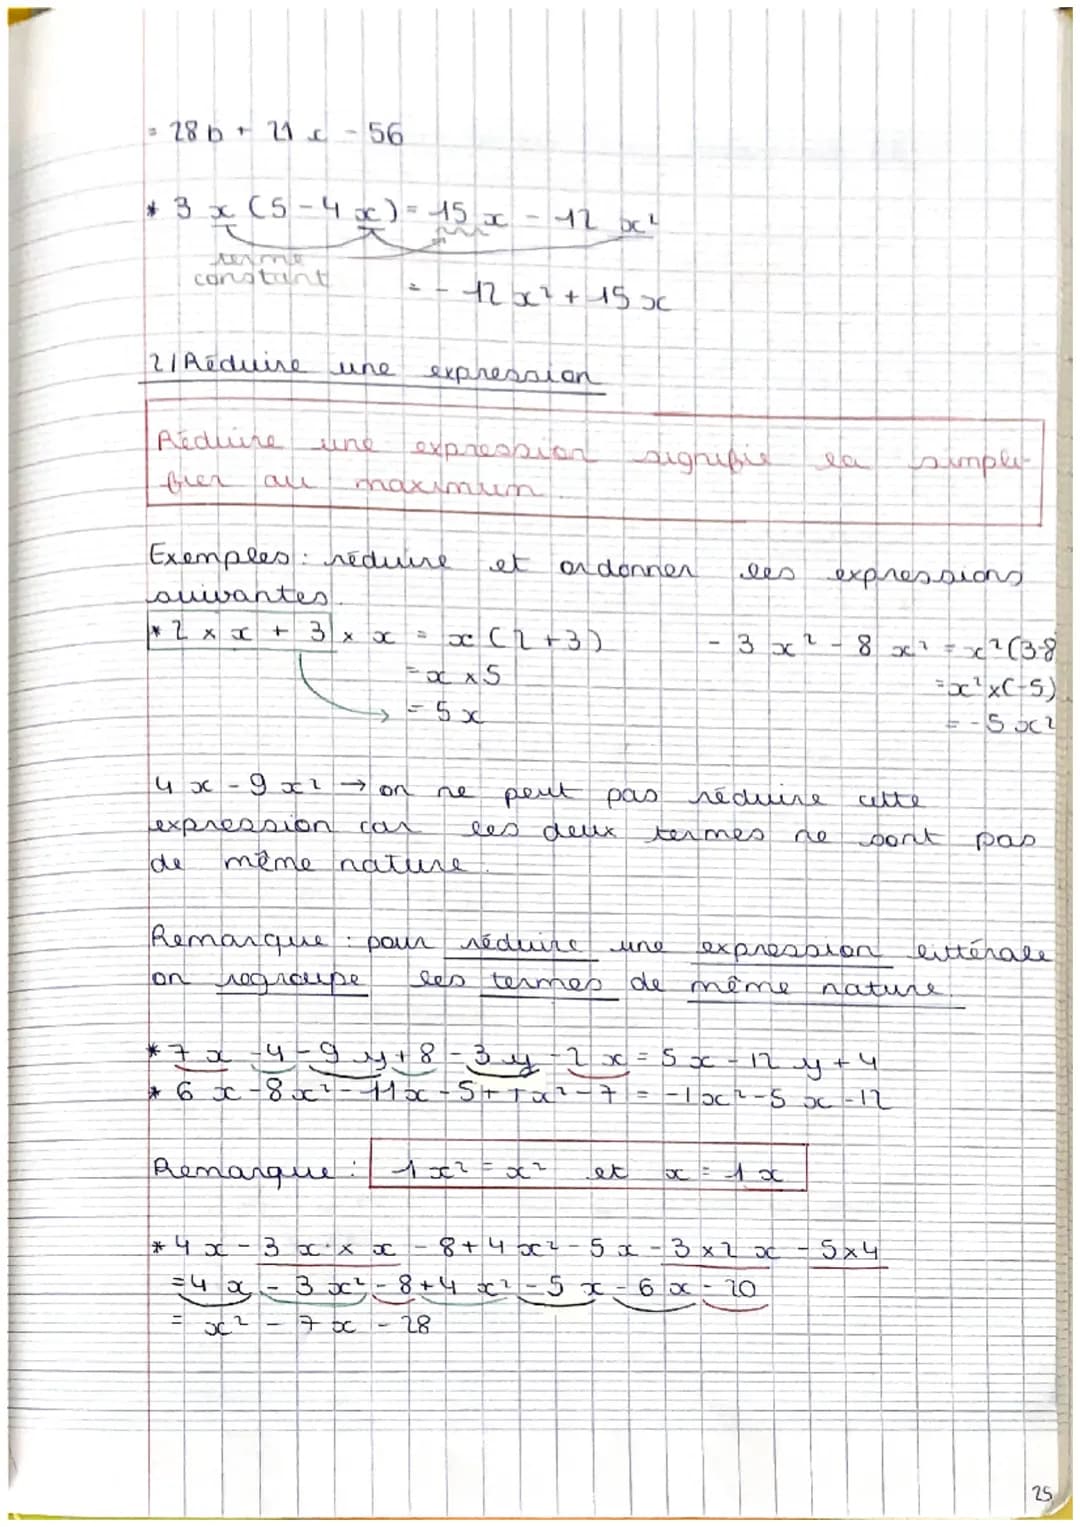 = 28b + 21x - 56
* 3x(5-4x) = 15x - 12x²
terme
constant
= - 12x² + 15x
2/ Réduire une expression
Réduire une expression signifie la simpli-
fier au maximum.
Exemples : réduire et ordonner les expressions
suivantes.
* 2 × x + 3 × x = x(2+3)
= x × 5
= 5x
- 3x² - 8x² = x²(3-8
= x² × (-5)
= -5x²
4x - 9x² → on ne peut pas réduire cette
expression car les deux termes ne sont pas
de même nature.
Remarque : pour réduire une expression littérale
on regroupe les termes de même nature.
* 7x - 4 - 9y + 8 - 3y - 2x = 5x - 12y + 4
* 6x - 8x² - 11x - 5 + 7x² - 7 = -1x² - 5x - 12
Remarque : 1x² = x² et x = 1x
* 4x - 3x × x - 8 + 4x² - 5x - 3×2x - 5×4
= 4x - 3x² - 8 + 4x² - 5x - 6x - 20
= x² - 7x - 28
25